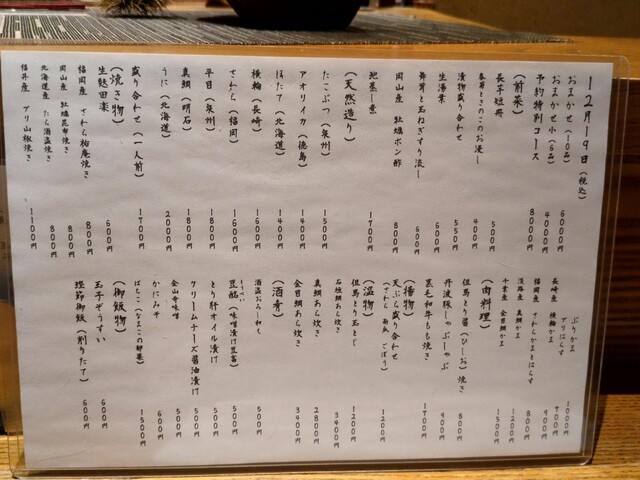 12月19日(税込)
おまかせ(10品) 6000円
おまかせ小(6品) 4000円
予約特別コース 8000円
(前菜)
長芋短冊 500円
春菊ときのこのお浸し 400円
漬物盛り合わせ 550円
生湯葉 600円
舞茸と玉ねぎすり流し 600円
岡山産 牡蠣ポン酢 800円
地蒸し鮑 1700円
(天然造り)
たこぶつ(泉州) 1500円
アオリイカ(徳島) 1400円
ほたて(北海道) 1400円
横輪(長崎) 1600円
さわら(福岡) 1600円
平目(泉州) 1800円
真鯛(明石) 1800円
うに(北海道) 2000円
盛り合わせ(一人前) 1700円
(焼き物)
生麩田楽 600円
福岡産 さわら柚庵焼き 800円
岡山産 牡蠣昆布焼き 800円
北海道産 たら酒盗焼き 800円
福井産 ブリ山椒焼き 1100円
ぶりかま 1000円
ブリはらす 700円
長崎産 横輪かま 900円
福岡産 さわらかまとはらす 800円
淡路産 真鯛かま 1200円
千葉産 金目鯛かま 1500円
(肉料理)
但馬とり醤(ひしお)焼き 800円
丹波豚しゃぶしゃぶ 900円
黒毛和牛もも焼き 1700円
(揚物)
天ぷら盛り合わせ 1200円
(さわら 南瓜 ごぼう)
(温物)
但馬とり玉とじ 1200円
石垣鯛あら炊き 3400円
真鯛あら炊き 2800円
金目鯛あら炊き 3400円
(酒肴)
酒盗おろし和え 500円
豆酩(味噌漬け豆腐) 500円
とり肝オイル漬け 500円
クリームチーズ醤油漬け 500円
金山寺味噌 500円
かにみそ 600円
ばちこ(なまこの卵巣) 1500円
(御飯物)
玉子ぞうすい 600円
鰹節御飯(削りたて) 600円